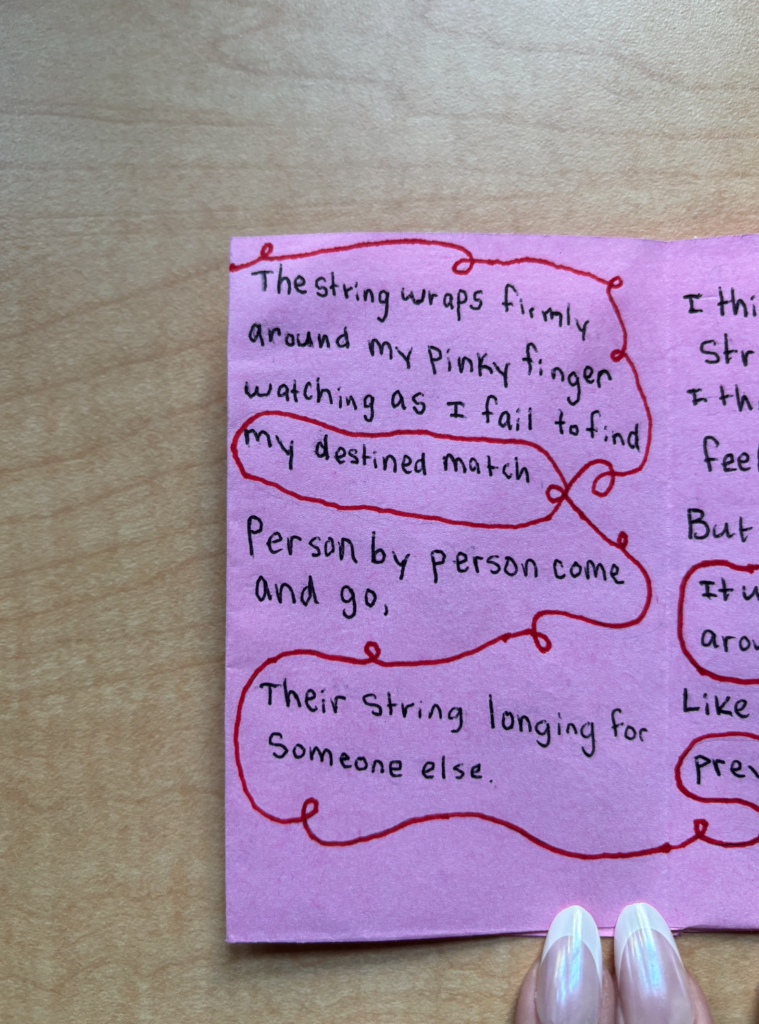 The string wraps firmly
around my pinky finger
watching as I fail to find
my destined match
Person by person come
and go,
Their string longing for
someone else.
I
I
feel
But
It
Like